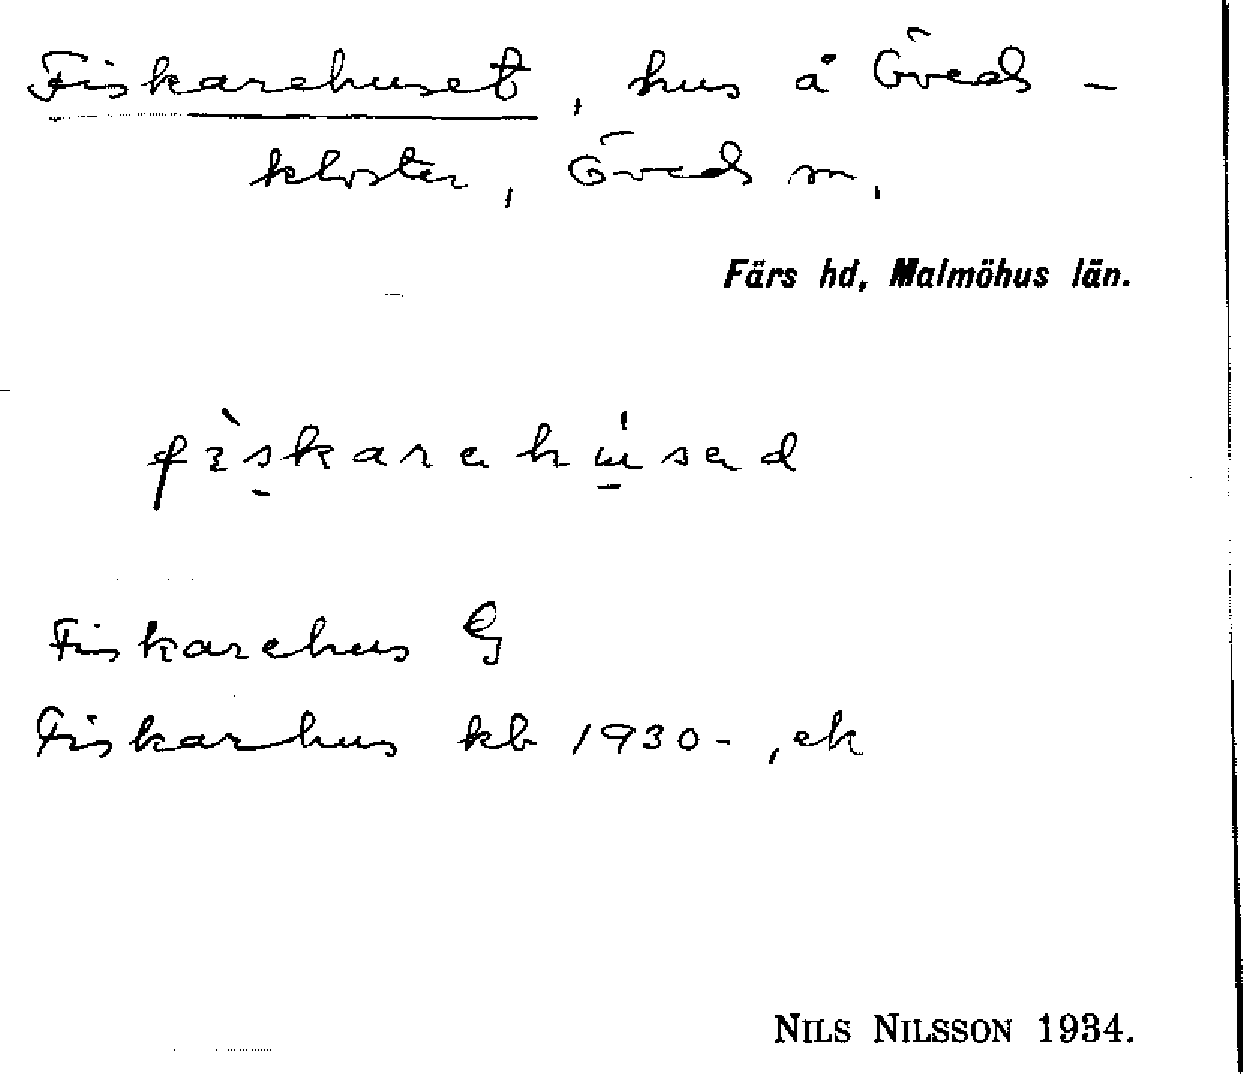 Fiskarehuset, hus å Öveds-
kloster, Öveds sn.
Färs hd, Malmöhus län.
fìskarehúsed
Fiskarehus G
Fiskarhus kb 1930-, ek
NILS NILSSON 1934.